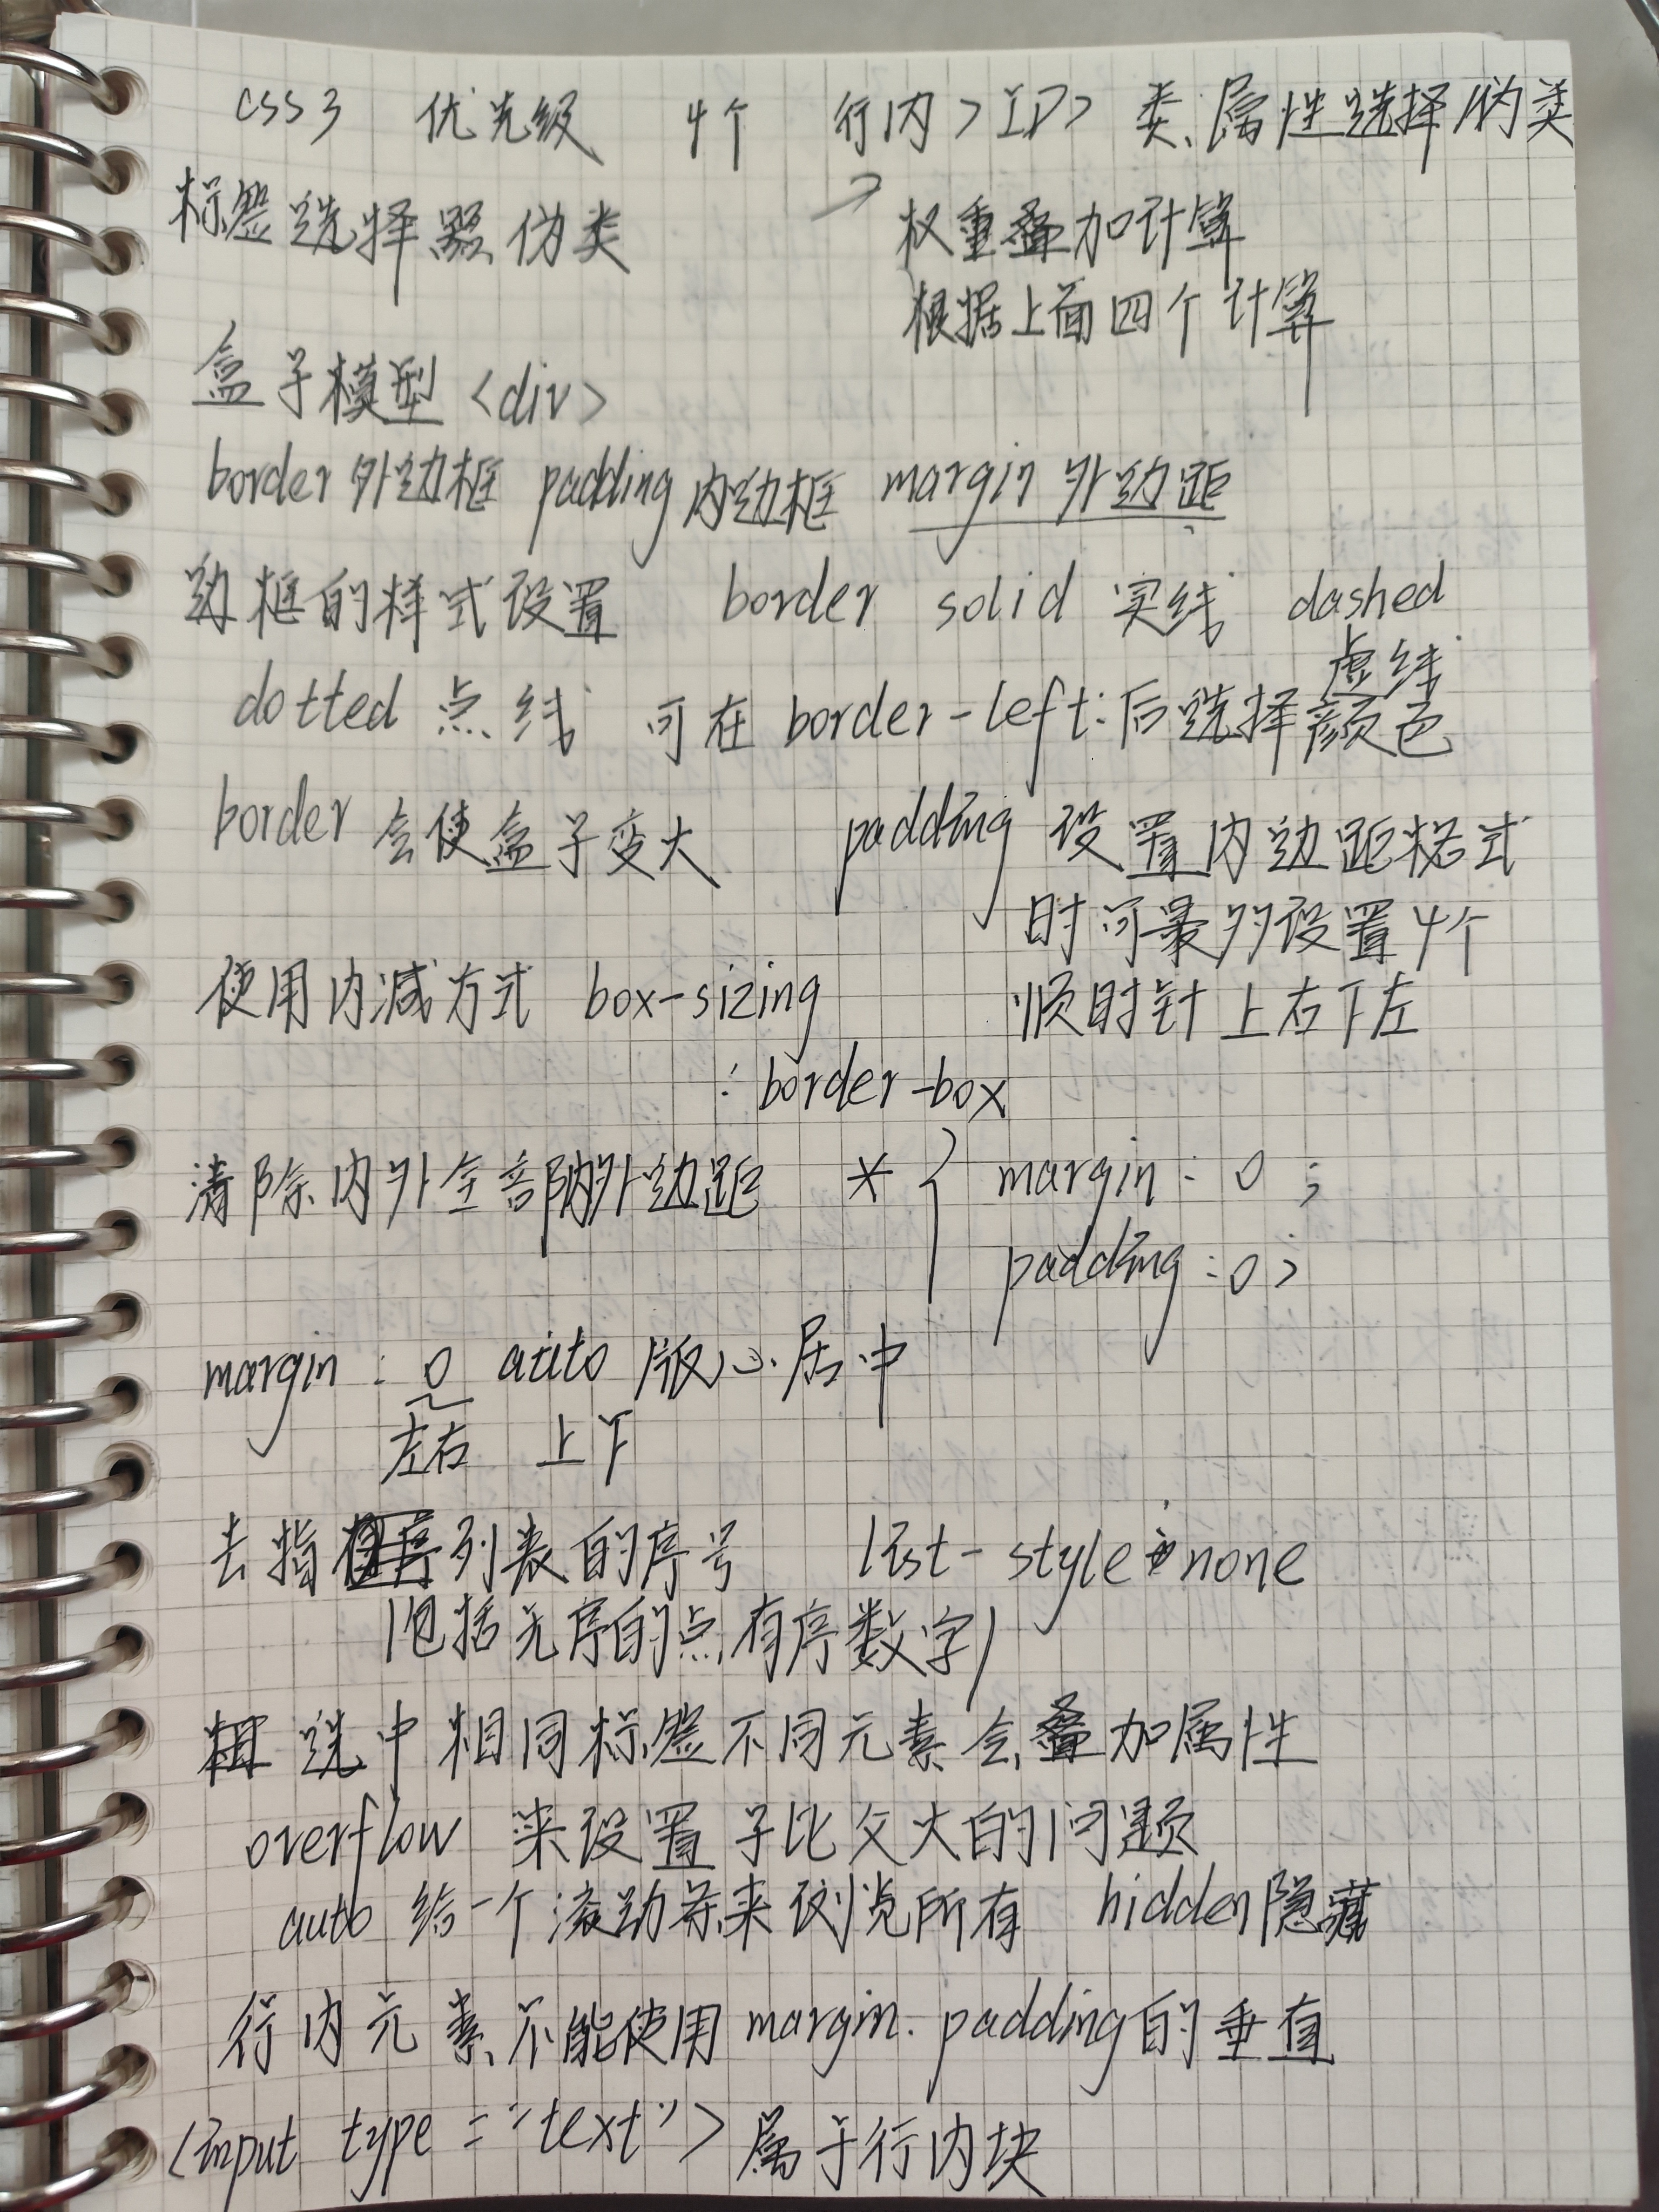 css3 优先级 4个 行内>ID>类、属性选择 伪类
标签选择器 伪类
权重叠加计算
根据上面四个计算
盒子模型<div>
border 外边框 padding 内边框 margin 外边距
边框的样式设置 border solid 实线 dashed
虚线
dotted 点线 可在 border-left:后选择颜色
border 会使盒子变大 padding 设置内边距格式
时可最多设置4个
使用内减方式 box-sizing 顺时针上右下左
: border-box
清除内外全部内外边距 *{ margin: 0;
padding:0;
margin: 0 auto 版心居中
左右 上下
去指 序列表的序号 list-style:none
(包括无序的点,有序数字)
选中相同标签不同元素会叠加属性
overflow 来设置子比父大的问题
auto 给一个滚动条来浏览所有 hidden 隐藏
行内元素不能使用 margin. padding 的垂直
<input type="text"> 属于行内块